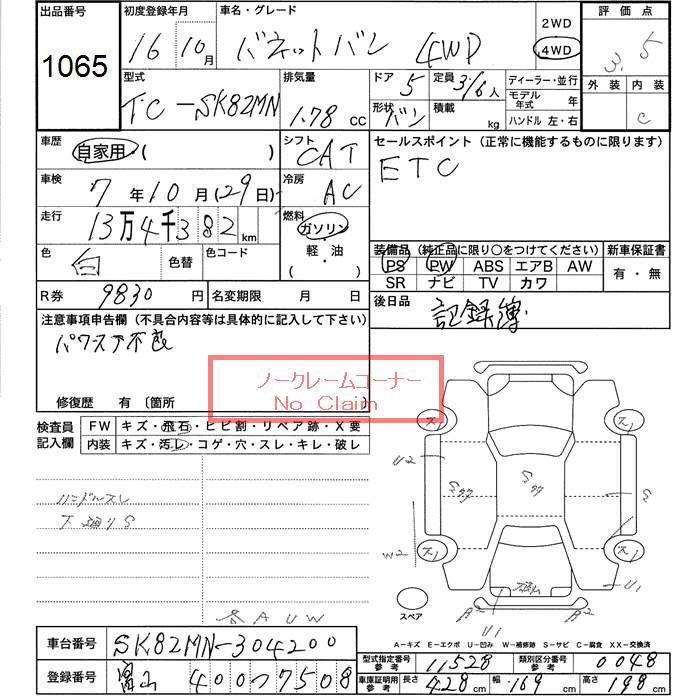 出品番号
1065
初度登録年月
16 10月
車名・グレード
バネットバン 4WD
2WD
4WD
評価点
3.5
外装 内装
C
型式
TC-SK82MN
排気量
1.78 cc
ドア
5
定員
3/6人
形状
バン
積載
kg
ディーラー・並行
モデル年式 年
ハンドル 左・右
車歴
自家用・( )
シフト
CAT
セールスポイント (正常に機能するものに限ります)
ETC
車検
7年10月(29日)
冷房
AC
走行
13万4千382km
燃料
ガソリン
・
軽・油
・( )
色
白
色替
色コード
装備品 (純正品に限り○をつけてください)
PS PW ABS エアB AW
SR ナビ TV カワ
新車保証書
有・無
R券 9830円
名変期限 月 日
後日品
記録簿
注意事項申告欄 (不具合内容等は具体的に記入して下さい)
パワステ不良
修復歴 有 〔箇所
ノークレームコーナー
No Claim
検査員記入欄
FW キズ・飛石・ヒビ割・リペア跡・X要
内装 キズ・汚レ・コゲ・穴・スレ・キレ・破レ
ハンドルスレ
下廻りS
A U W
ス1
ス1
U2
S
W2
ス1
ス1
U1
U1
スペア
A-キズ E-エクボ U-凹み W-補修跡 S-サビ C-腐食 XX-交換済
車台番号
SK82MN-304200
登録番号
富山 400 つ 7508
型式指定番号 参考
11528
類別区分番号 参考
0048
車庫証明用 参考
長さ 428cm 幅 169cm 高さ 198cm